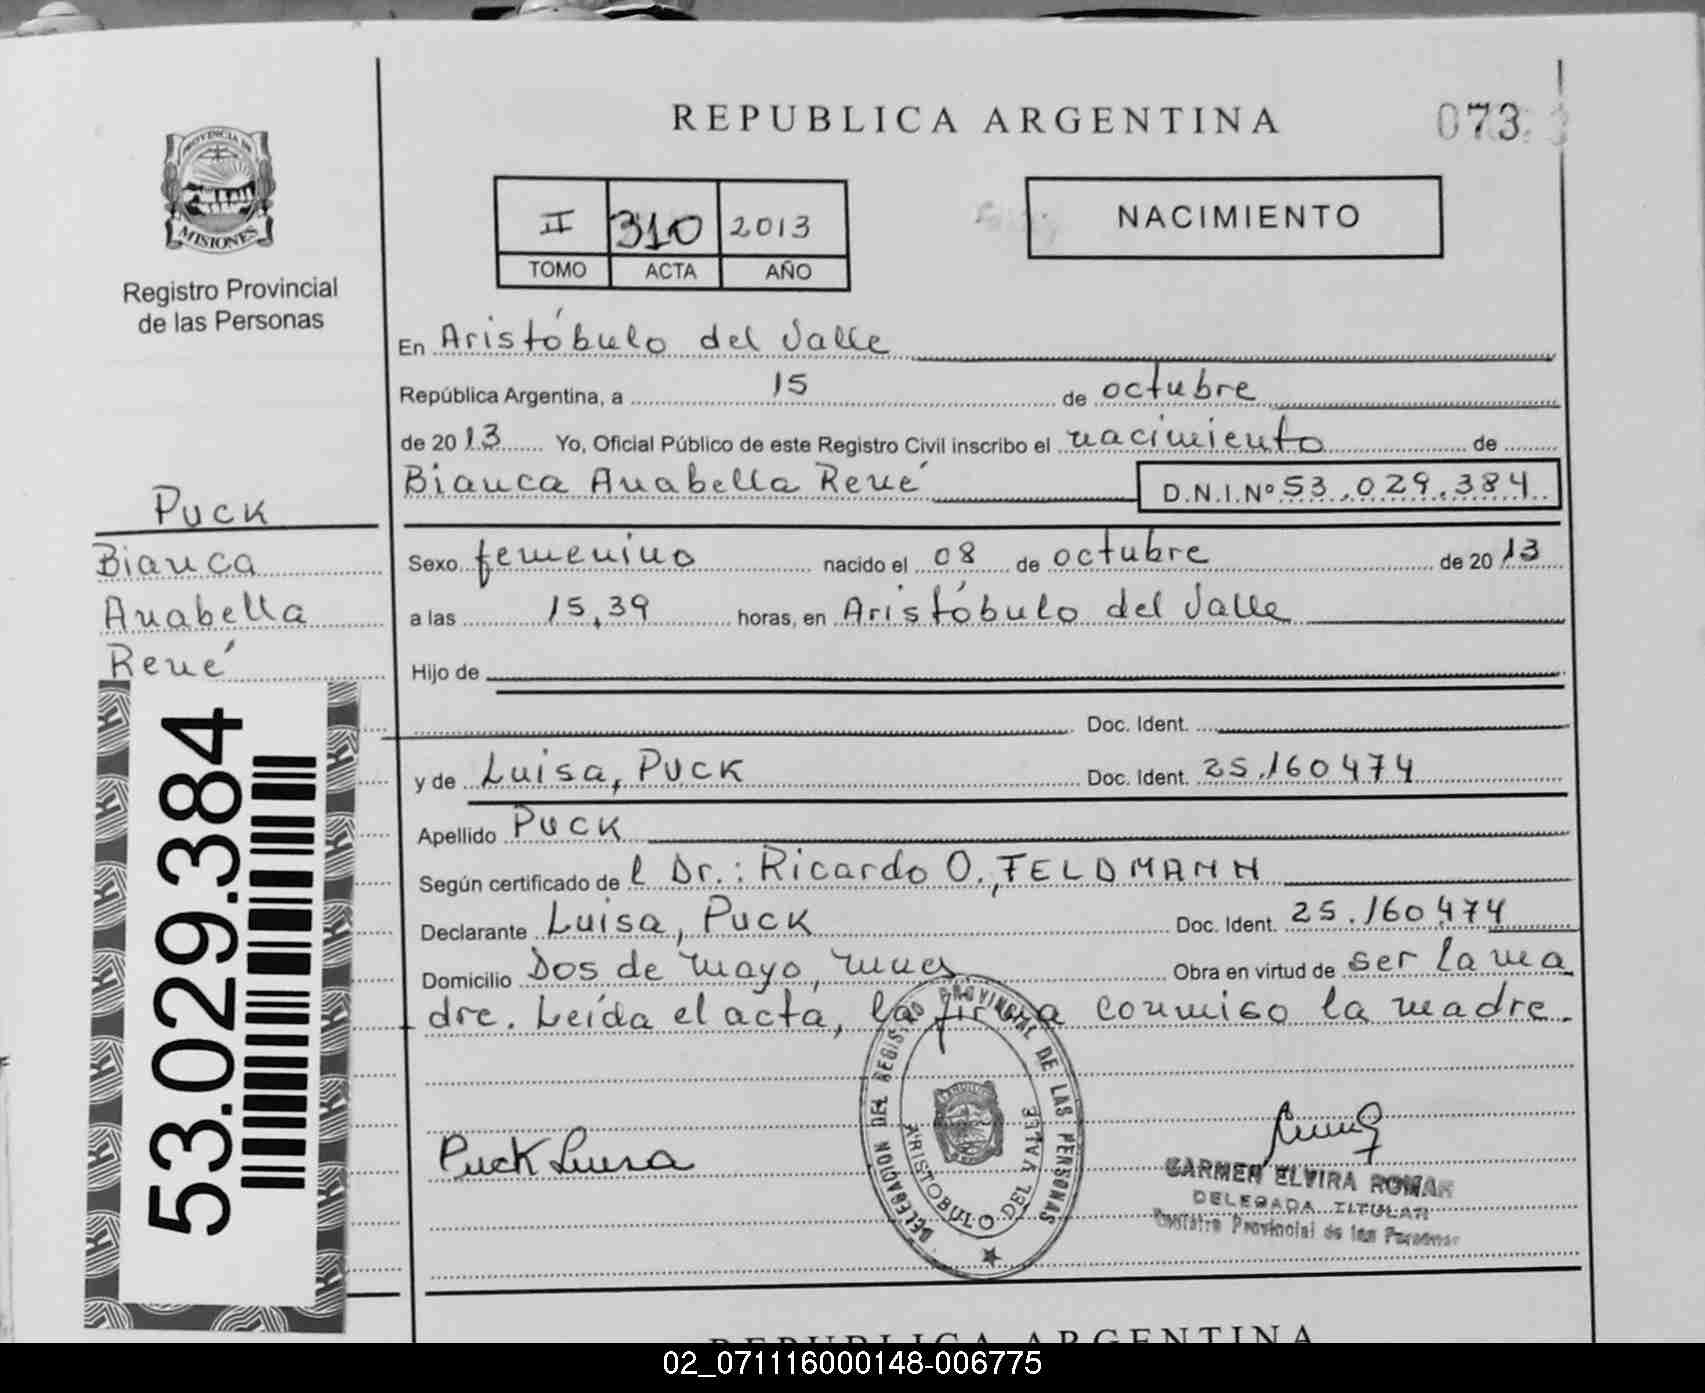 REPUBLICA ARGENTINA
073
PROVINCIA DE
MISIONES
Registro Provincial
de las Personas
II 310 2013
TOMO ACTA AÑO
NACIMIENTO
En Aristóbulo del Valle
República Argentina, a 15 de octubre
de 2013 Yo, Oficial Público de este Registro Civil inscribo el nacimiento de
Bianca Anabella René D.N.I.Nº 53.029.384
Puck
Bianca
Anabella
René
Sexo femenino nacido el 08 de octubre de 2013
a las 15,39 horas, en Aristóbulo del Valle
Hijo de
Doc. Ident.
y de Luisa, PUCK Doc. Ident. 25.160474
Apellido PUCK
Según certificado de l Dr.: Ricardo O. FELDMANN
Declarante Luisa, Puck Doc. Ident. 25.160.474
Domicilio Dos de mayo, mnes Obra en virtud de ser la ma
dre. Leída el acta, la firma conmigo la madre.
53.029.384
Puck Luisa
DELEGACION DEL REGISTRO PROVINCIAL DE LAS PERSONAS
ARISTOBULO DEL VALLE
CARMEN ELVIRA ROMAN
DELEGADA TITULAR
Registro Provincial de las Personas
REPUBLICA ARGENTINA
02_071116000148-006775